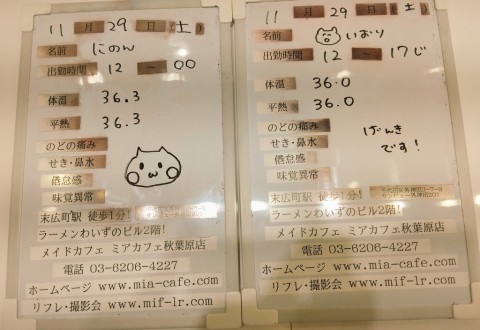 11 月 29 日 (土)
名前 にのん
出勤時間 12 － 00
体温 36.3
平熱 36.3
のどの痛み
せき・鼻水
倦怠感
味覚異常
末広町駅 徒歩1分!
ラーメンわいずのビル2階!
メイドカフェ ミアカフェ秋葉原店
電話 03-6206-4227
ホームページ www.mia-cafe.com
リフレ・撮影会 www.mif-lr.com
11 月 29 日 (土)
名前 いおり
出勤時間 12 － 17じ
体温 36.0
平熱 36.0
のどの痛み
せき・鼻水
げんきです!
倦怠感
味覚異常
末広町駅 徒歩1分!
ラーメンわいずのビル2階!
メイドカフェ ミアカフェ秋葉原店
電話 03-6206-4227
ホームページ www.mia-cafe.com
リフレ・撮影会 www.mif-lr.com